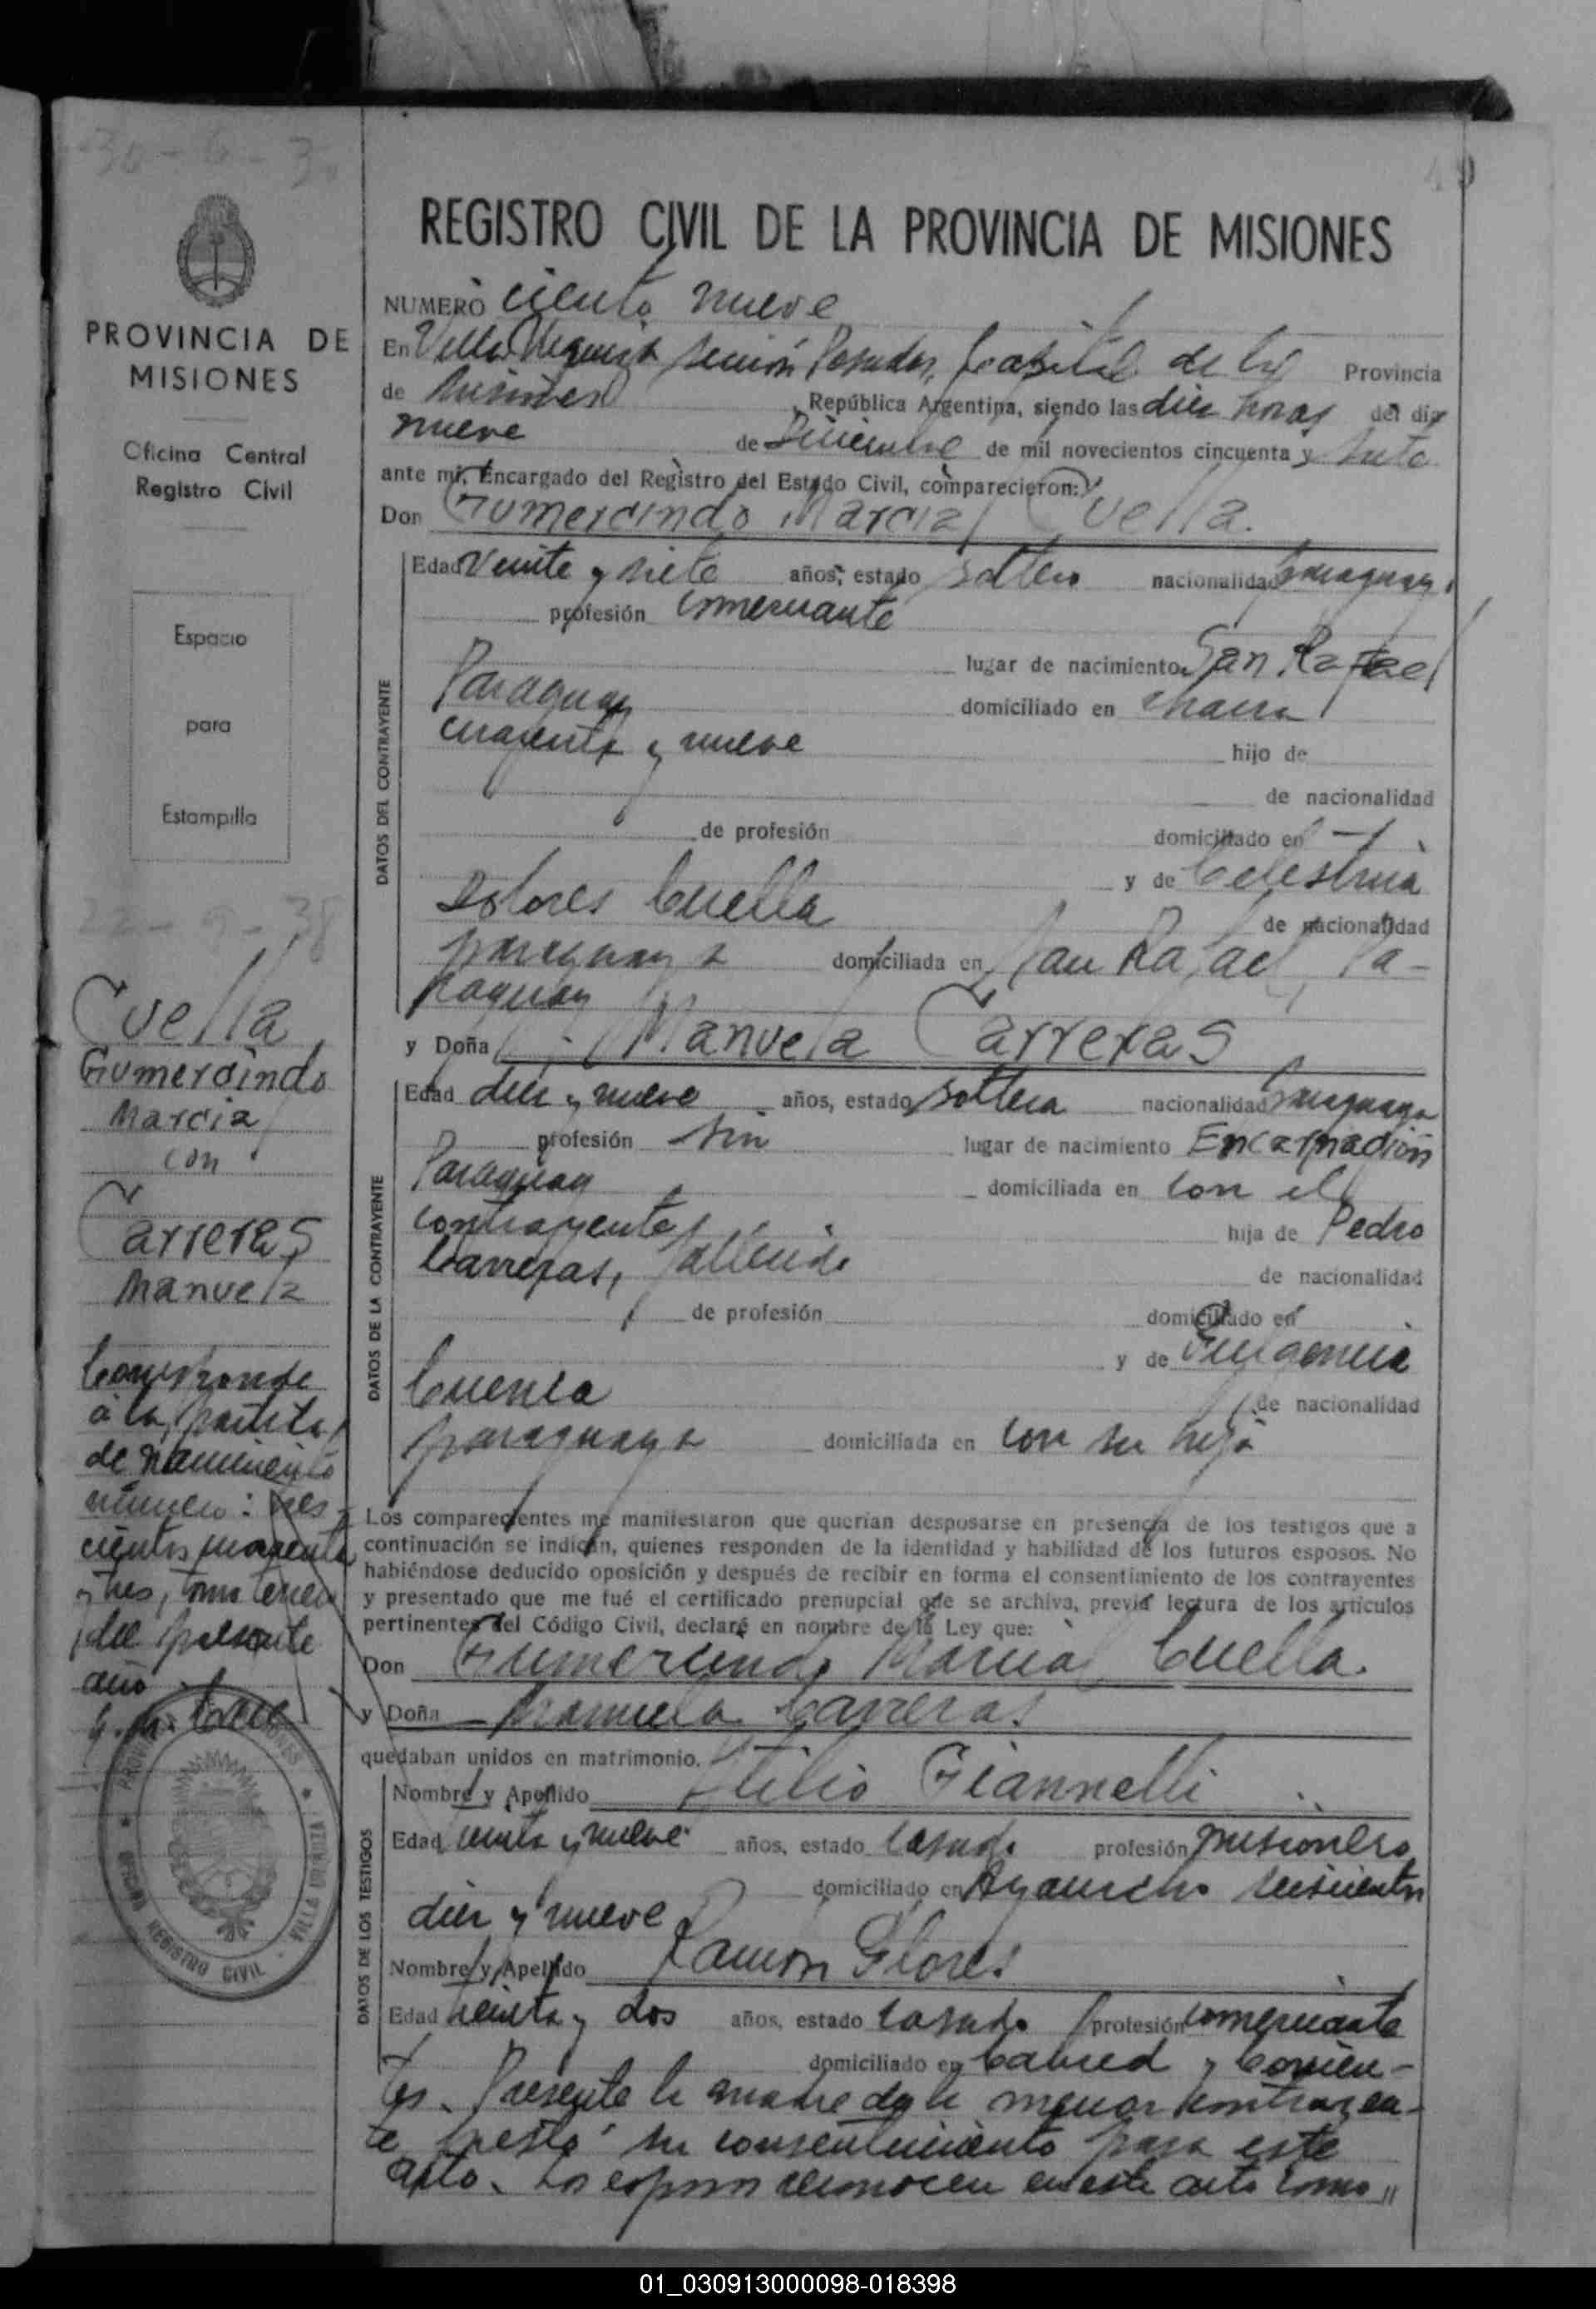 REGISTRO CIVIL DE LA PROVINCIA DE MISIONES
NUMERO ciento nueve
En Villa Urquiza sección Posadas, Capital de la Provincia
de Misiones, República Argentina, siendo las diez horas del día
nueve de Diciembre de mil novecientos cincuenta y siete
ante mí, Encargado del Registro del Estado Civil, comparecieron:
Don Gumercindo Marcial Cuella.
DATOS DEL CONTRAYENTE
Edad Veinte y siete años, estado soltero nacionalidad paraguay.
profesión comerciante
lugar de nacimiento San Rafael
Paraguay domiciliado en
y nueve hijo de
de nacionalidad
de profesión domiciliado en
y de Celestina
Dolores Cuella de nacionalidad
paraguaya domiciliada en San Rafael, Pa-
raguay
y Doña Manuela Carreras
DATOS DE LA CONTRAYENTE
Edad diez y nueve años, estado soltera nacionalidad paraguaya
profesión sin lugar de nacimiento Encarnación
Paraguay domiciliada en con el
contrayente hija de Pedro
Carreras, fallecido de nacionalidad
de profesión domiciliado en
y de Fulgencia
Cuenca de nacionalidad
paraguaya domiciliada en con su hija
Los comparecientes me manifestaron que querían desposarse en presencia de los testigos que a
continuación se indican, quienes responden de la identidad y habilidad de los futuros esposos. No
habiéndose deducido oposición y después de recibir en forma el consentimiento de los contrayentes
y presentado que me fué el certificado prenupcial que se archiva, previa lectura de los artículos
pertinentes del Código Civil, declaré en nombre de la Ley que:
Don Gumercindo Marcial Cuella.
y Doña Manuela Carreras.
quedaban unidos en matrimonio.
DATOS DE LOS TESTIGOS
Nombre y Apellido Atilio Giannelli
Edad y nueve años, estado casado profesión misionero
domiciliado en Ayacucho seiscientos
diez y nueve
Nombre y Apellido Ramón Flores
Edad treinta y dos años, estado casado profesión comerciante
domiciliado en Cabred y Corrien-
tes. Presente la madre de la menor contrayen-
te prestó su consentimiento para este
acto. Los esposos reconocen en este acto como "
PROVINCIA DE
MISIONES
Oficina Central
Registro Civil
Espacio
para
Estampilla
Cuella
Gumercindo
Marcial
con
Carreras
Manuela
Corresponde
a la partida
de nacimiento
número: tres
cientos cuarenta
y tres, tomo tercero
del presente
año
OFICINA REGISTRO CIVIL - VILLA URQUIZA
01_030913000098-018398